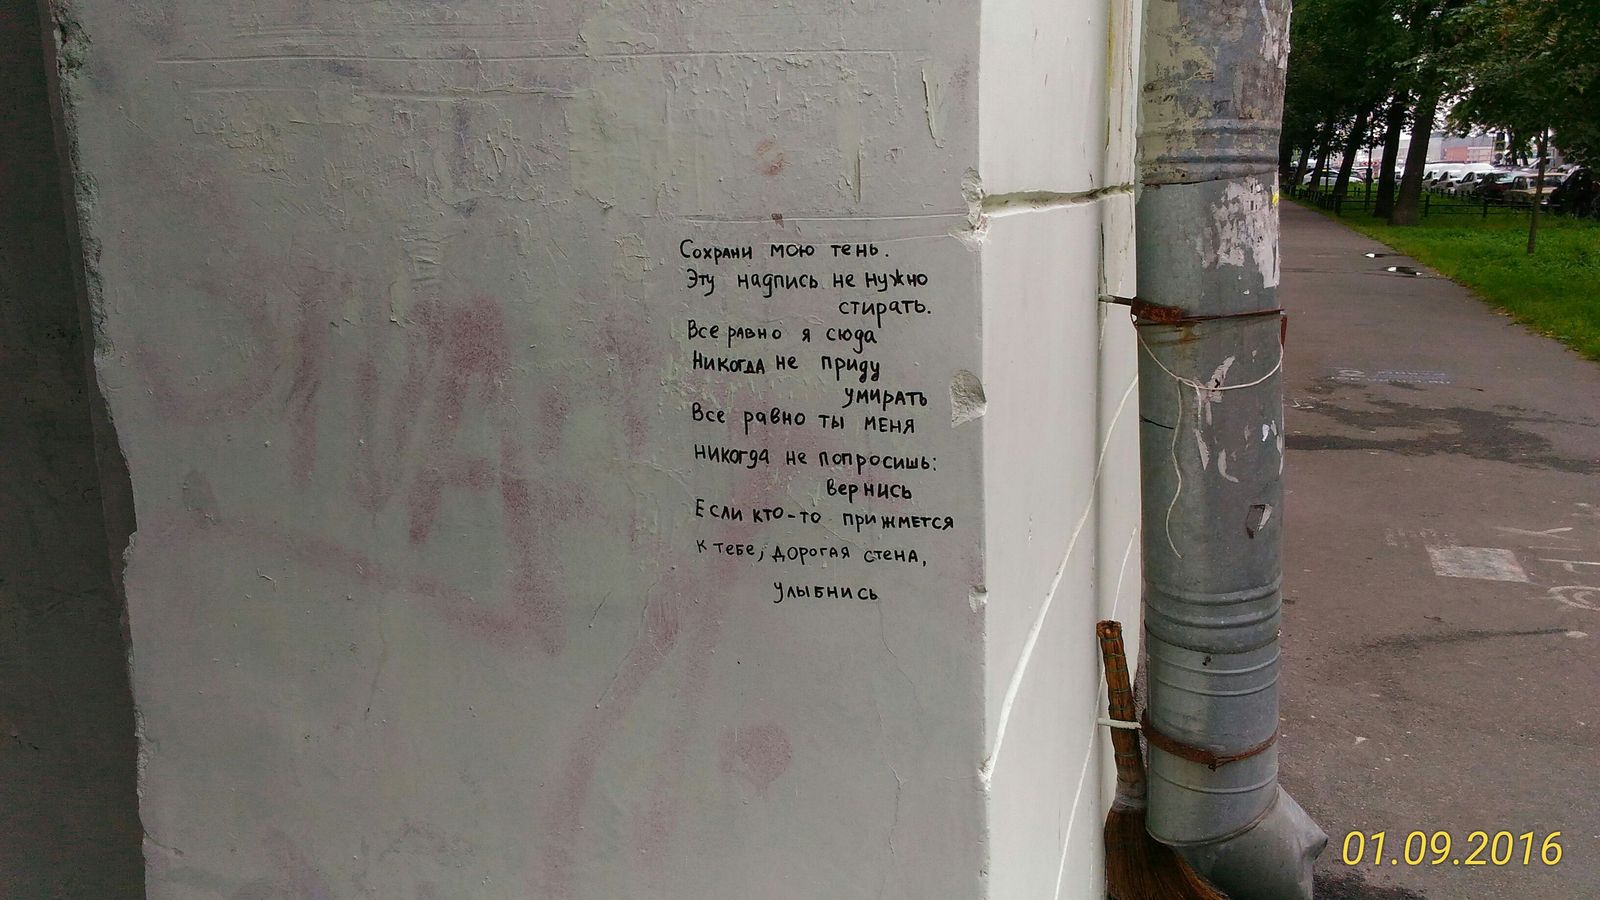 Сохрани мою тень.
Эту надпись не нужно
стирать.
Все равно я сюда
Никогда не приду
умирать
Все равно ты меня
никогда не попросишь:
вернись
Если кто-то прижмется
к тебе, дорогая стена,
улыбнись
01.09.2016